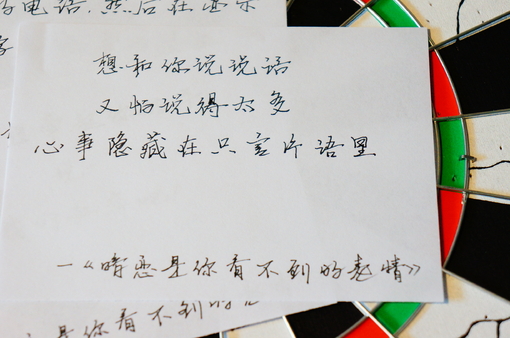 电话,然后在
想和你说说话
又怕说得太多
心事隐藏在只言片语里
—《暗恋是你看不到的表情》
是你看不到的